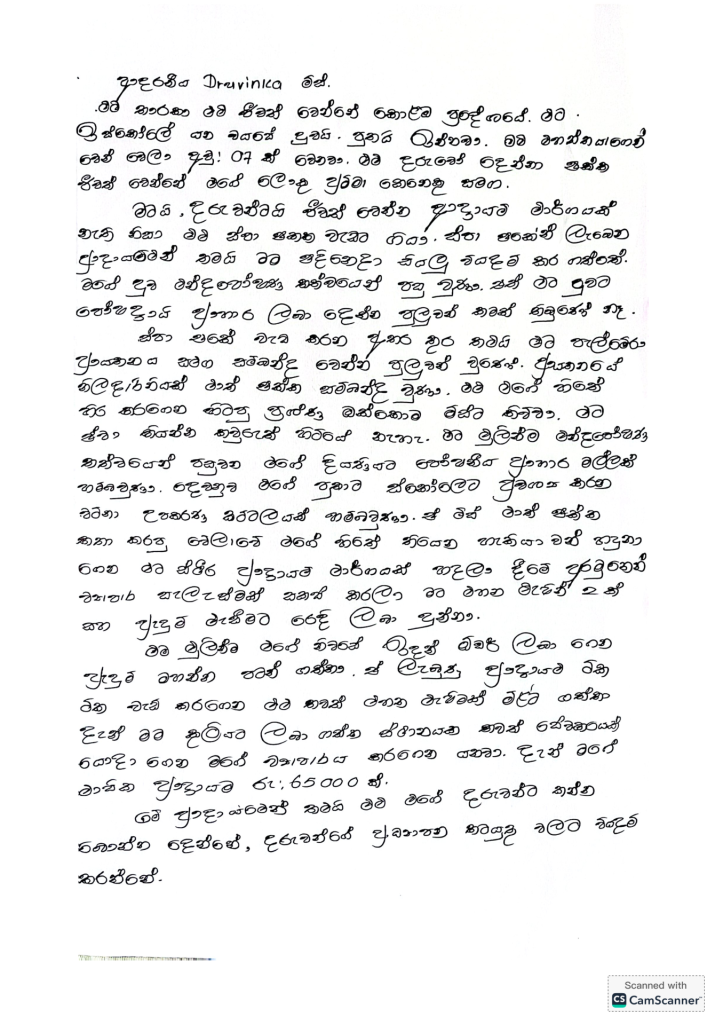 ආදරනීය Druvinka මිස්.
මම තාරකා මම ජීවත් වෙන්නේ කොළඹ ප්‍රදේශයේ. මට
ඉස්කෝලේ යන වයසේ දුවයි. පුතයි ඉන්නවා. මම මහත්තයාගෙන්
වෙන් වෙලා අවු: 07 ක් වෙනවා. මම දරුවෝ දෙන්නා එක්ක
ජීවත් වෙන්නේ මගේ ලොකු අම්මා කෙනෙකු සමග.
මටයි, දරුවන්ටයි ජීවත් වෙන්න ආදායම් මාර්ගයක්
නැති නිසා මම ඒවා එකක වැඩට ගියා. ඒවා එකෙන් ලැබෙන
ආදායමෙන් තමයි මට එදිනෙදා සියලු වියදම් කර ගත්තේ.
මගේ දුව මන්දපෝෂණ තත්වයෙන් පසු වුණා. ඒත් මට දුවට
පෝෂදායි ආහාර ලබා දෙන්න පුලුවන් කමක් තිබුණේ නෑ.
ඒවා එකේ වැඩ කරන අතර තුර තමයි මට පැල්මේරා
ආයතනය සමග සම්බන්ද වෙන්න පුලුවන් වුණේ. ආයතනයේ
නිලදාරිනියක් මාත් එක්ක සම්බන්ද වුණා. මම මගේ හිතේ
හිර කරගෙන හිටපු ප්‍රශ්ණ ඔක්කොම මිස්ට කිව්වා. මට
ඒවා කියන්න කවුරුත් හිටියේ නැහැ. මට මුලින්ම මන්දපෝෂණ
තත්වයෙන් පසුවන මගේ දියණියට පෝෂනීය ආහාර මල්ලක්
හම්බවුණා. දෙවනුව මගේ පුතාට ඉස්කෝලෙට අවශ්‍ය කරන
වටිනා උපකරණ කට්ටලයක් හම්බවුණා. ඒ මිස් මාත් එක්ක
කතා කරපු වෙලාවේ මගේ හිතේ තියෙන හැකියා වන් හදුනා
ගෙන මට ස්ථිර ආදායම් මාර්ගයක් හදලා දීමේ අරමුනෙන්
ව්‍යාපාර සැලැස්මක් සකස් කරලා මට මහන මැෂින් 2 ක්
සහ ඇදුම් මැසීමට රෙදි ලබා දුන්නා.
මම මුලින්ම මගේ නිවසේ ඉදන් ඕඩර් ලබා ගෙන
ඇදුම් මහන්න පටන් ගත්තා. ඒ ලැබුණු ආදායම ටික
ටික වැඩි කරගෙන මම තවත් මහන මැෂිමක් මිලට ගත්තා
දැන් මම කුලියට ලබා ගත්ත ස්ථානයක තවත් සේවකයෙක්
යොදා ගෙන මගේ ව්‍යාපාරය කරගෙන යනවා. දැන් මගේ
මාසික ආදායම රු: 65000 ක්.
ගම් ආදායමෙන් තමයි මම මගේ දරුවන්ට කන්න
බොන්න දෙන්නේ, දරුවන්ගේ අධ්‍යාපන කටයුතු වලට වියදම්
කරන්නේ.
Scanned with
CS CamScanner